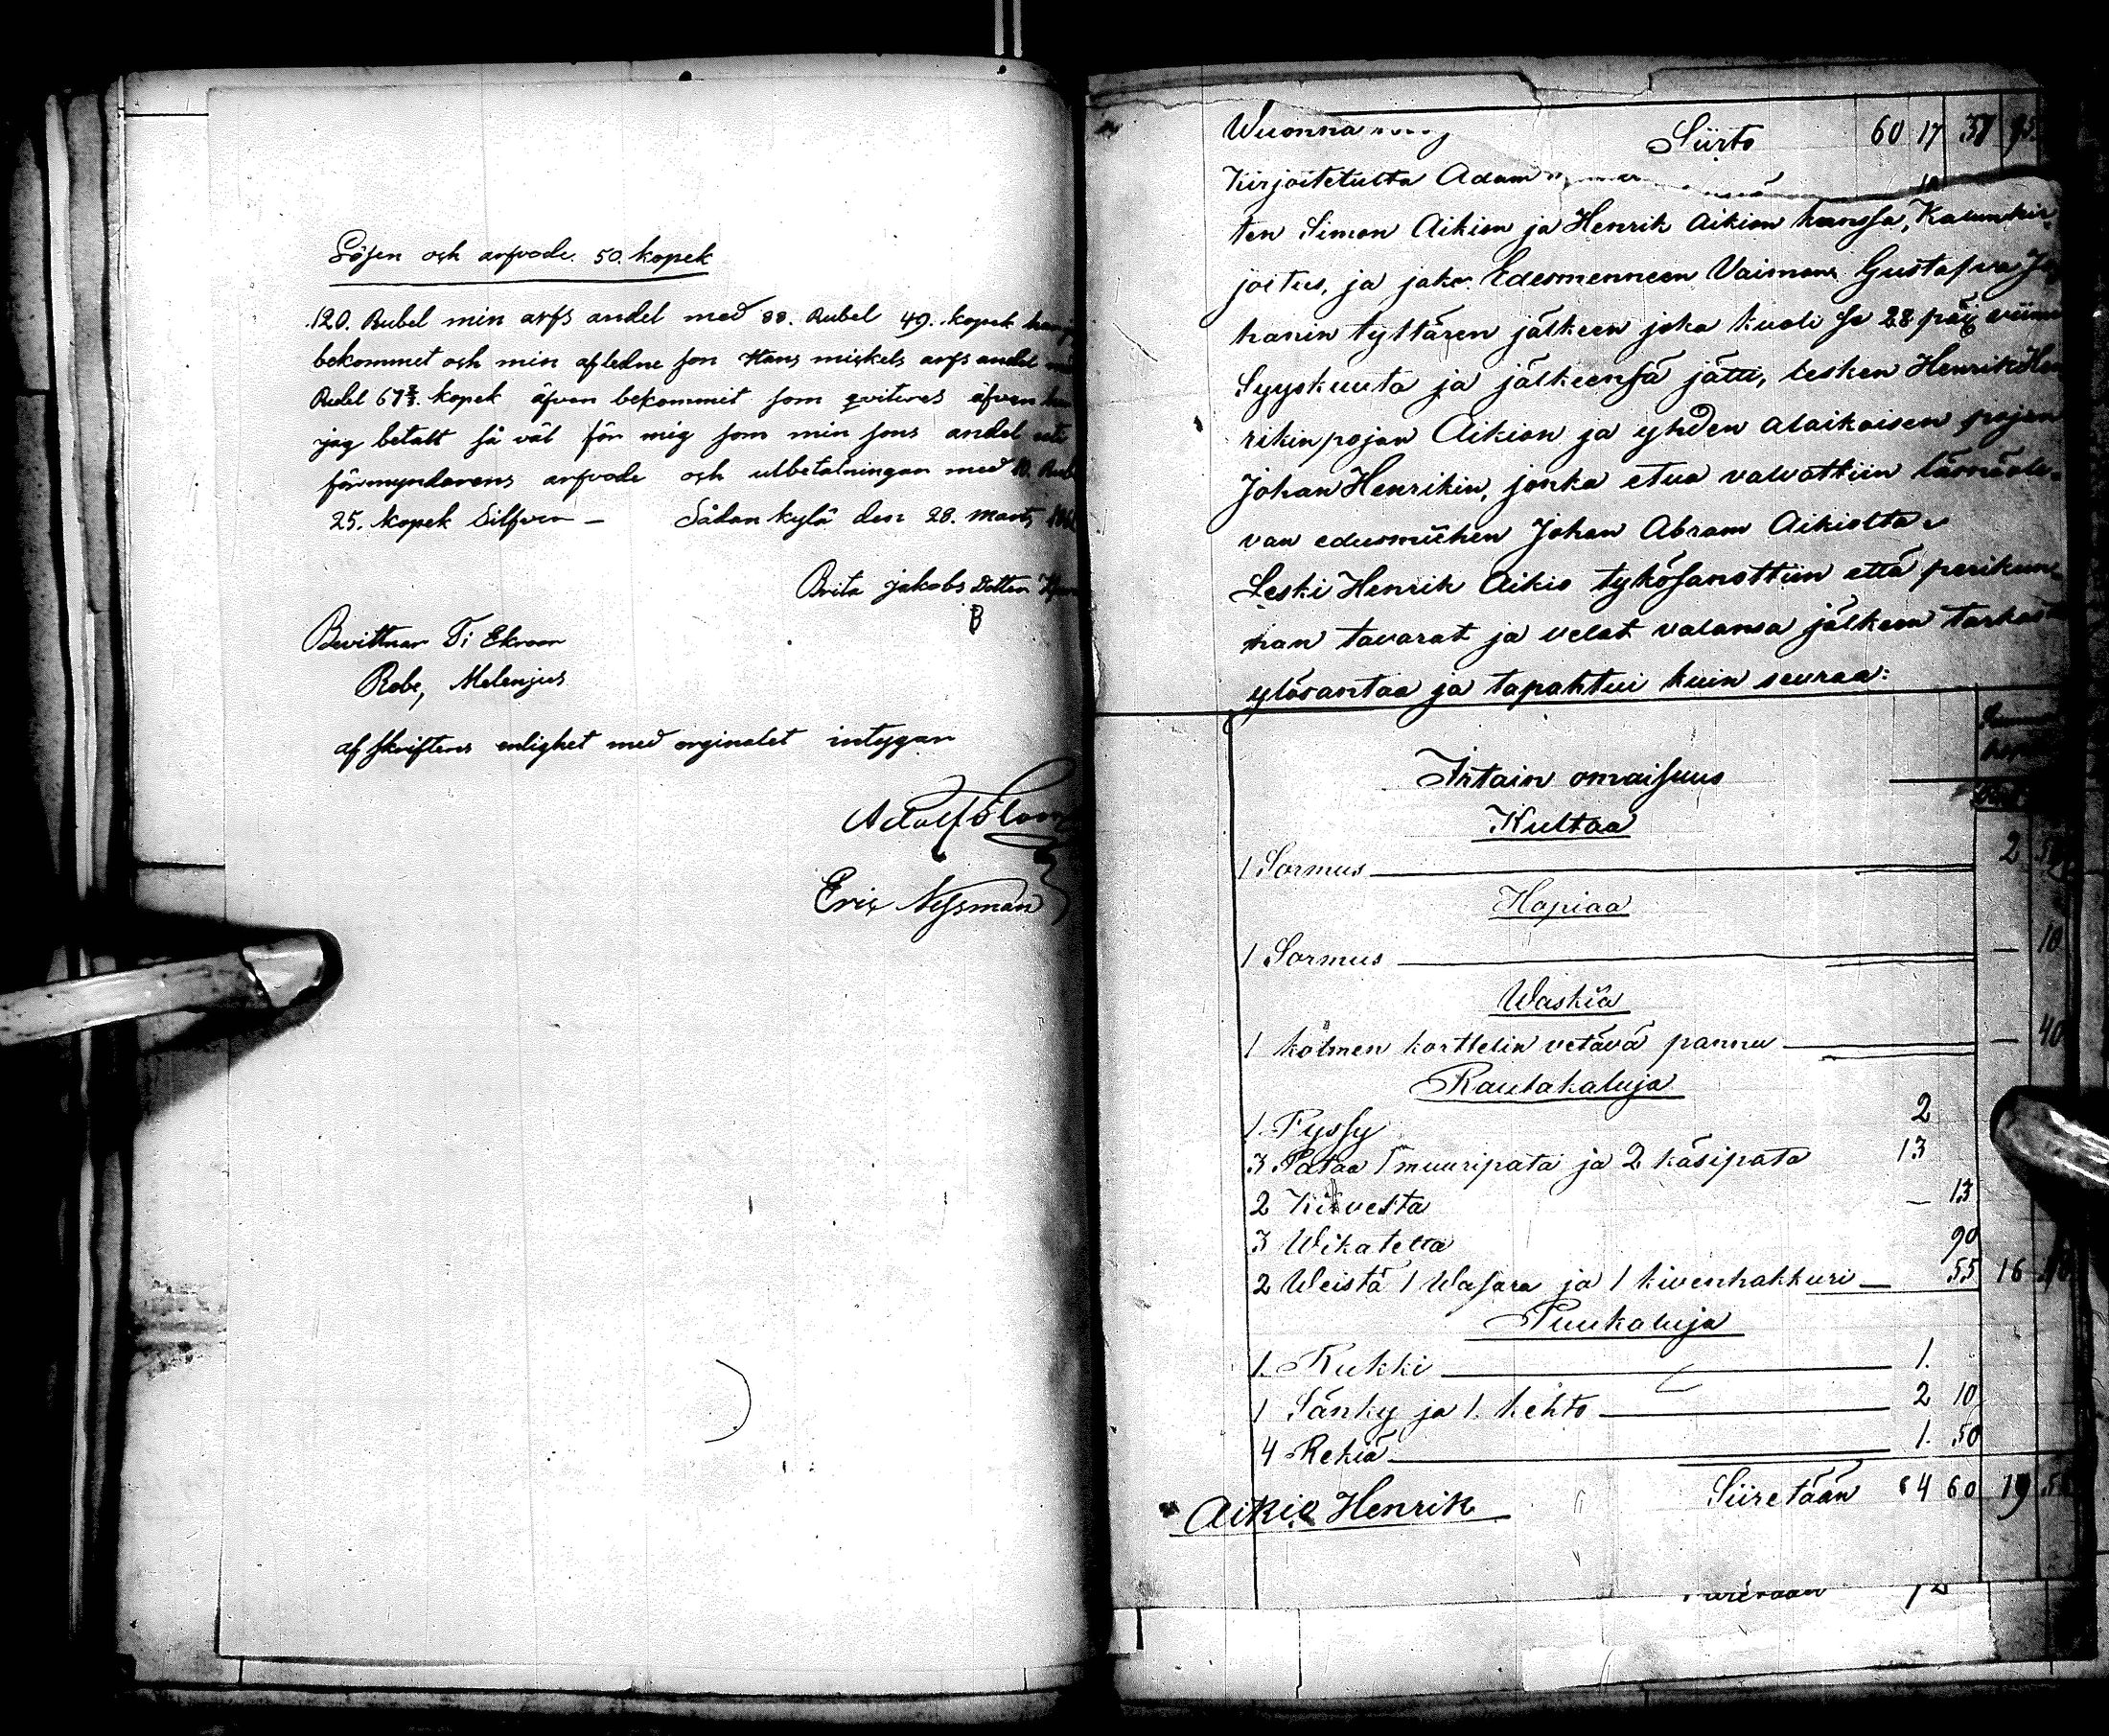 Lösen och arfvode. 50. kopek
120. Rubel min arfs andel med 88. Rubel 49. kopek
bekommet och min afledne son Hans mickels arfs andel
Rubel 67¾. kopek äfven bekommit som qviteras äfven
jag betalt så väl för mig som min sons andel uti
förmyndarens arfvode och utbetalningar med 10.
25. Kopek Silfver — Sådankylä den 28. Mars
Brita jakobs Dotter
B
Bevittnar
Robe,
afskriftens enlighet med orginalet intygar
Adolf
Eric Nyssman
Wuonna
Siirto 60 17
Kirjoitetulta Adam
ten Simon Aikion ja Henrik Aikion kanssa,
joitus, ja jako Edesmenneen Vaimon Gustafva
hanin tyttären jälkeen joka kuoli se 28 päiv viime
Syyskuuta ja jälkeensä jätti, lesken Henrik
rikin pojan Aikion ja yhden alaikaisen pojan
Johan Henrikin, jonka etua valvottiin läsnäole-
van edusmiehen Johan Abram Aikiolta
Leski Henrik Aikio tykösanottiin että perikun-
nan tavarat ja velat valansa jälkeen
ylösantaa ja tapahtui kuin seuraa:
Irtain omaisuus
Kultaa
1 Sormus 2
Hopiaa
1 Sormus — 10
Waskia
1 kolmen korttelin vetävä pannu — 40
Rautakaluja
1 Pyssy 2
3 Pataa 1 muuripata ja 2 käsipata 13
2 Kirvestä — 13
3 Wikatetta 90
2 Weistä 1 Wasara ja 1 kivenhakkuri 55 16
Puukaluja
1. Rukki 1.
1 Sänky ja 1. kehto 2 10
4 Rekiä 1. 50
Siiretään 4 60 19
Aikio Henrik